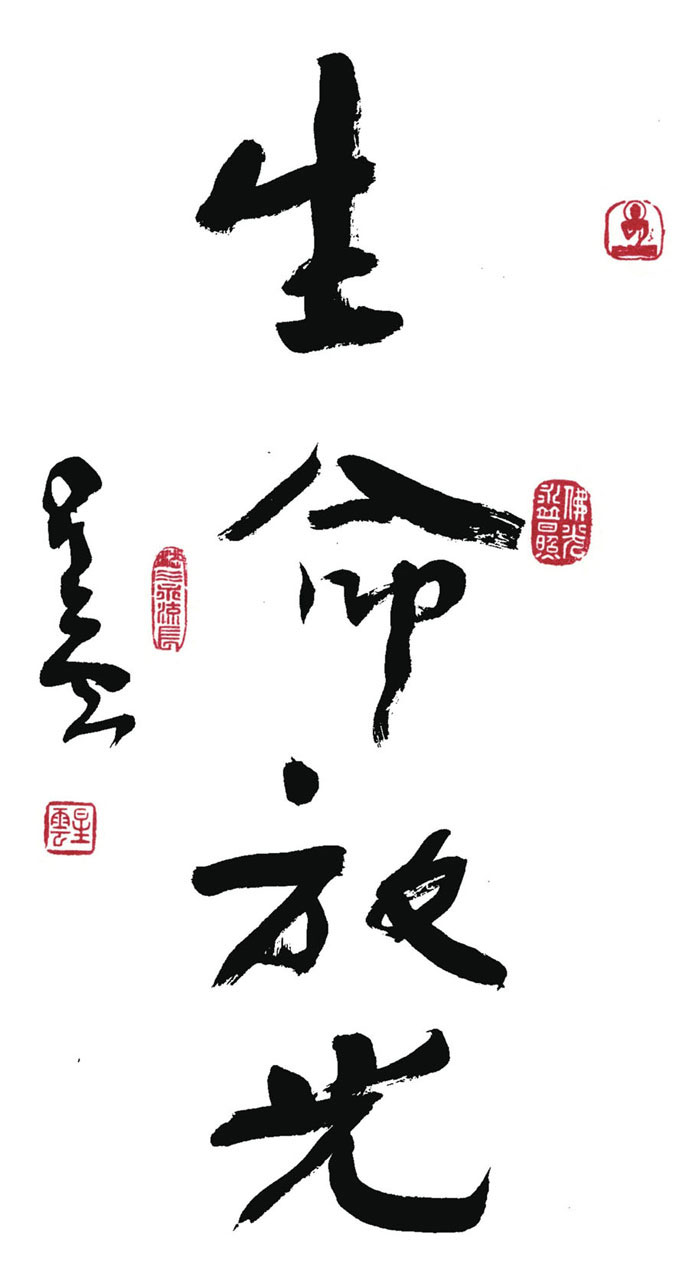 生命放光
佛光
永普照
星雲
星雲